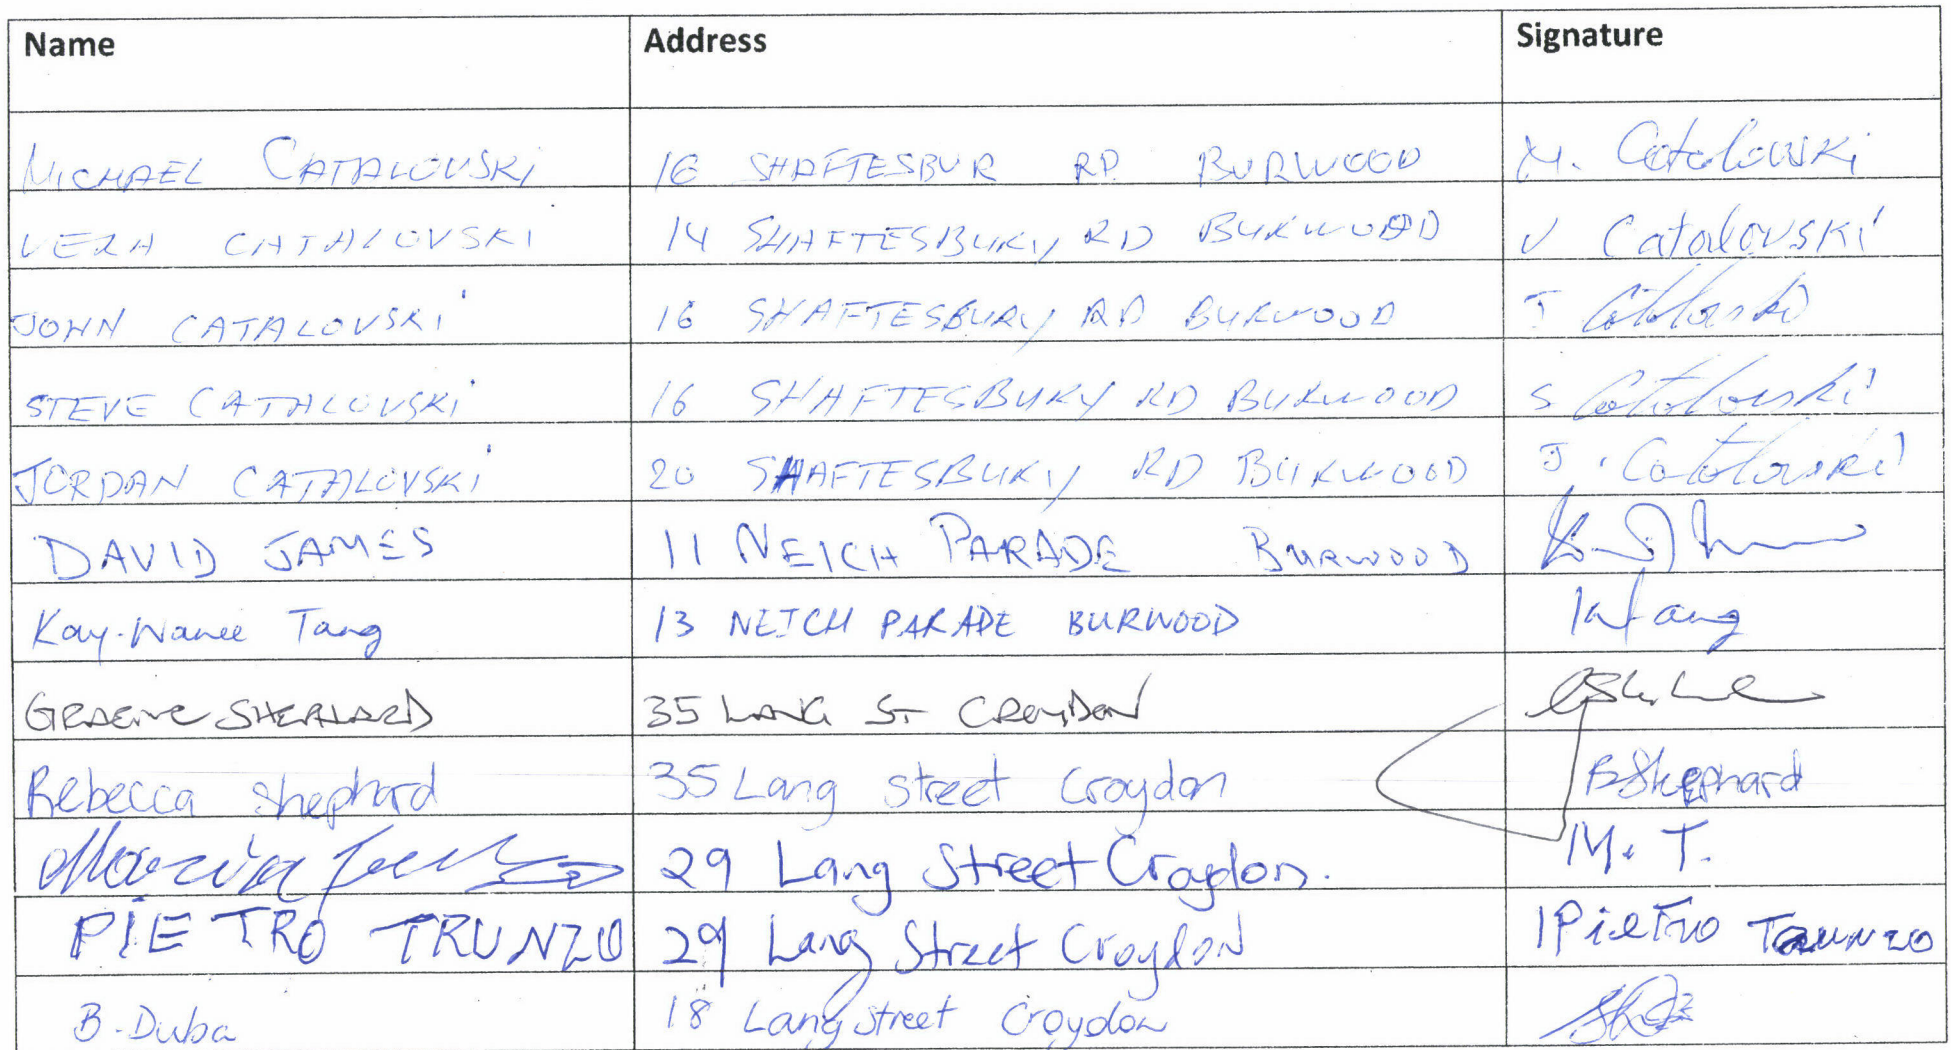 Name Address Signature
MICHAEL CATALOVSKI 16 SHAFTESBUR RD BURWOOD M. Catalovski
VERA CATALOVSKI 14 SHAFTESBURY RD BURWOOD V Catalovski
JOHN CATALOVSKI 16 SHAFTESBURY RD BURWOOD J Catalovski
STEVE CATALOVSKI 16 SHAFTESBURY RD BURWOOD S Catalovski
JORDAN CATALOVSKI 20 SHAFTESBURY RD BURWOOD J. Catalovski
DAVID JAMES 11 NEICH PARADE BURWOOD
Kay-Wanee Tang 13 NEICH PARADE BURWOOD
GRAEME SHEPHARD 35 LANG ST CROYDON
Rebecca Shephard 35 Lang street Croydon RShephard
29 Lang Street Croydon. M. T.
PIETRO TRUNZO 29 Lang Street Croydon Pietro TRUNZO
B. Duba 18 Lang street Croydon